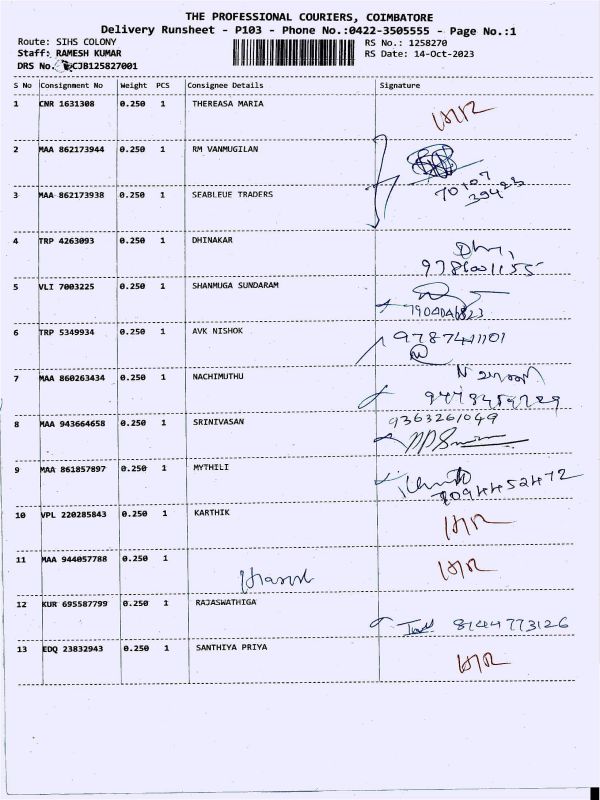 THE PROFESSIONAL COURIERS, COIMBATORE
Delivery Runsheet - P103 - Phone No.:0422-3505555 - Page No.:1
Route: SIHS COLONY RS No.: 1258270
Staff: RAMESH KUMAR RS Date: 14-Oct-2023
DRS No. CJB125827001
S No Consignment No Weight PCS Consignee Details Signature
1 CNR 1631308 0.250 1 THEREASA MARIA
2 MAA 862173944 0.250 1 RM VANMUGILAN
70107
39423
3 MAA 862173938 0.250 1 SEABLEUE TRADERS
4 TRP 4263093 0.250 1 DHINAKAR
5 VLI 7003225 0.250 1 SHANMUGA SUNDARAM
6 TRP 5349934 0.250 1 AVK NISHOK
7 MAA 860263434 0.250 1 NACHIMUTHU
8 MAA 943664658 0.250 1 SRINIVASAN 9363261049
9 MAA 861857897 0.250 1 MYTHILI
10 VPL 220285843 0.250 1 KARTHIK
11 MAA 944057788 0.250 1
12 KUR 695587799 0.250 1 RAJASWATHIGA
8144773126
13 EDQ 23832943 0.250 1 SANTHIYA PRIYA